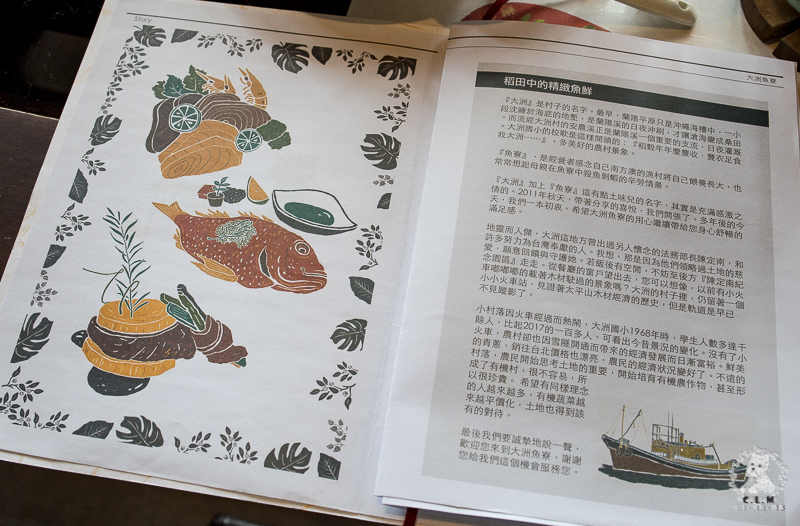 Story
大洲魚寮
稻田中的精緻魚鮮
『大洲』是村子的名字，最早，蘭陽平原只是沖繩海槽中，一小
段沈睡於海底的地塹，是蘭陽溪的日夜沖刷，才讓滄海變成桑田
。而流經大洲村的安農溪正是蘭陽溪一個重要的支流，日夜灌溉
。大洲國小的校歌是這樣開頭的：『稻穀年年慶豐收，豐衣足食
我大洲……』。多美好的農村景象。
『魚寮』，是經營者感念自己南方澳的漁村將自己餵養長大，也
常常想起母親在魚寮中殺魚剝蝦的辛勞情景。
『大洲』加上『魚寮』這有點土味兒的名字，其實是充滿感激之
情的。2011年秋天，帶著分享的喜悅，我們開張了。多年後的今
天，我們一本初衷，希望大洲魚寮的用心繼續帶給您身心舒暢的
滿足感。
地靈而人傑，大洲這地方曾出過另人懷念的法務部長陳定南，和
許多努力為台灣奉獻的人。我想，那是因為他們領略過土地的慈
愛，願意回饋與守護她。若飯後有空閒，不妨至後方『陳定南紀
念園區』走走。從餐廳的窗戶望出去，您可以想像，以前有小火
車嘟嘟嘟的載著木材駛過的景象嗎？大洲的村子裡，仍留著一個
小小火車站，見證著太平山木材經濟的歷史，但是軌道是早已
不見蹤影了。
小村落因火車經過而熱鬧，大洲國小1968年時，學生人數多達千
餘人，比起2017的一百多人，可看出今昔景況的變化。沒有了小
火車，農村卻也因雪隧開通而帶來的經濟發展而日漸富裕。鮮美
的青蔥，銷往台北價格也漂亮，農民的經濟狀況變好了。不遠的
村落，農民開始思考土地的重要，開始培育有機農作物，甚至形
成了有機村，很不容易，所
以很珍貴。希望有同樣理念
的人越來越多，有機蔬菜越
來越平價化，土地也得到該
有的對待。
最後我們要誠摯地說一聲，
歡迎您來到大洲魚寮，謝謝
您給我們這個機會服務您。
C.L.M